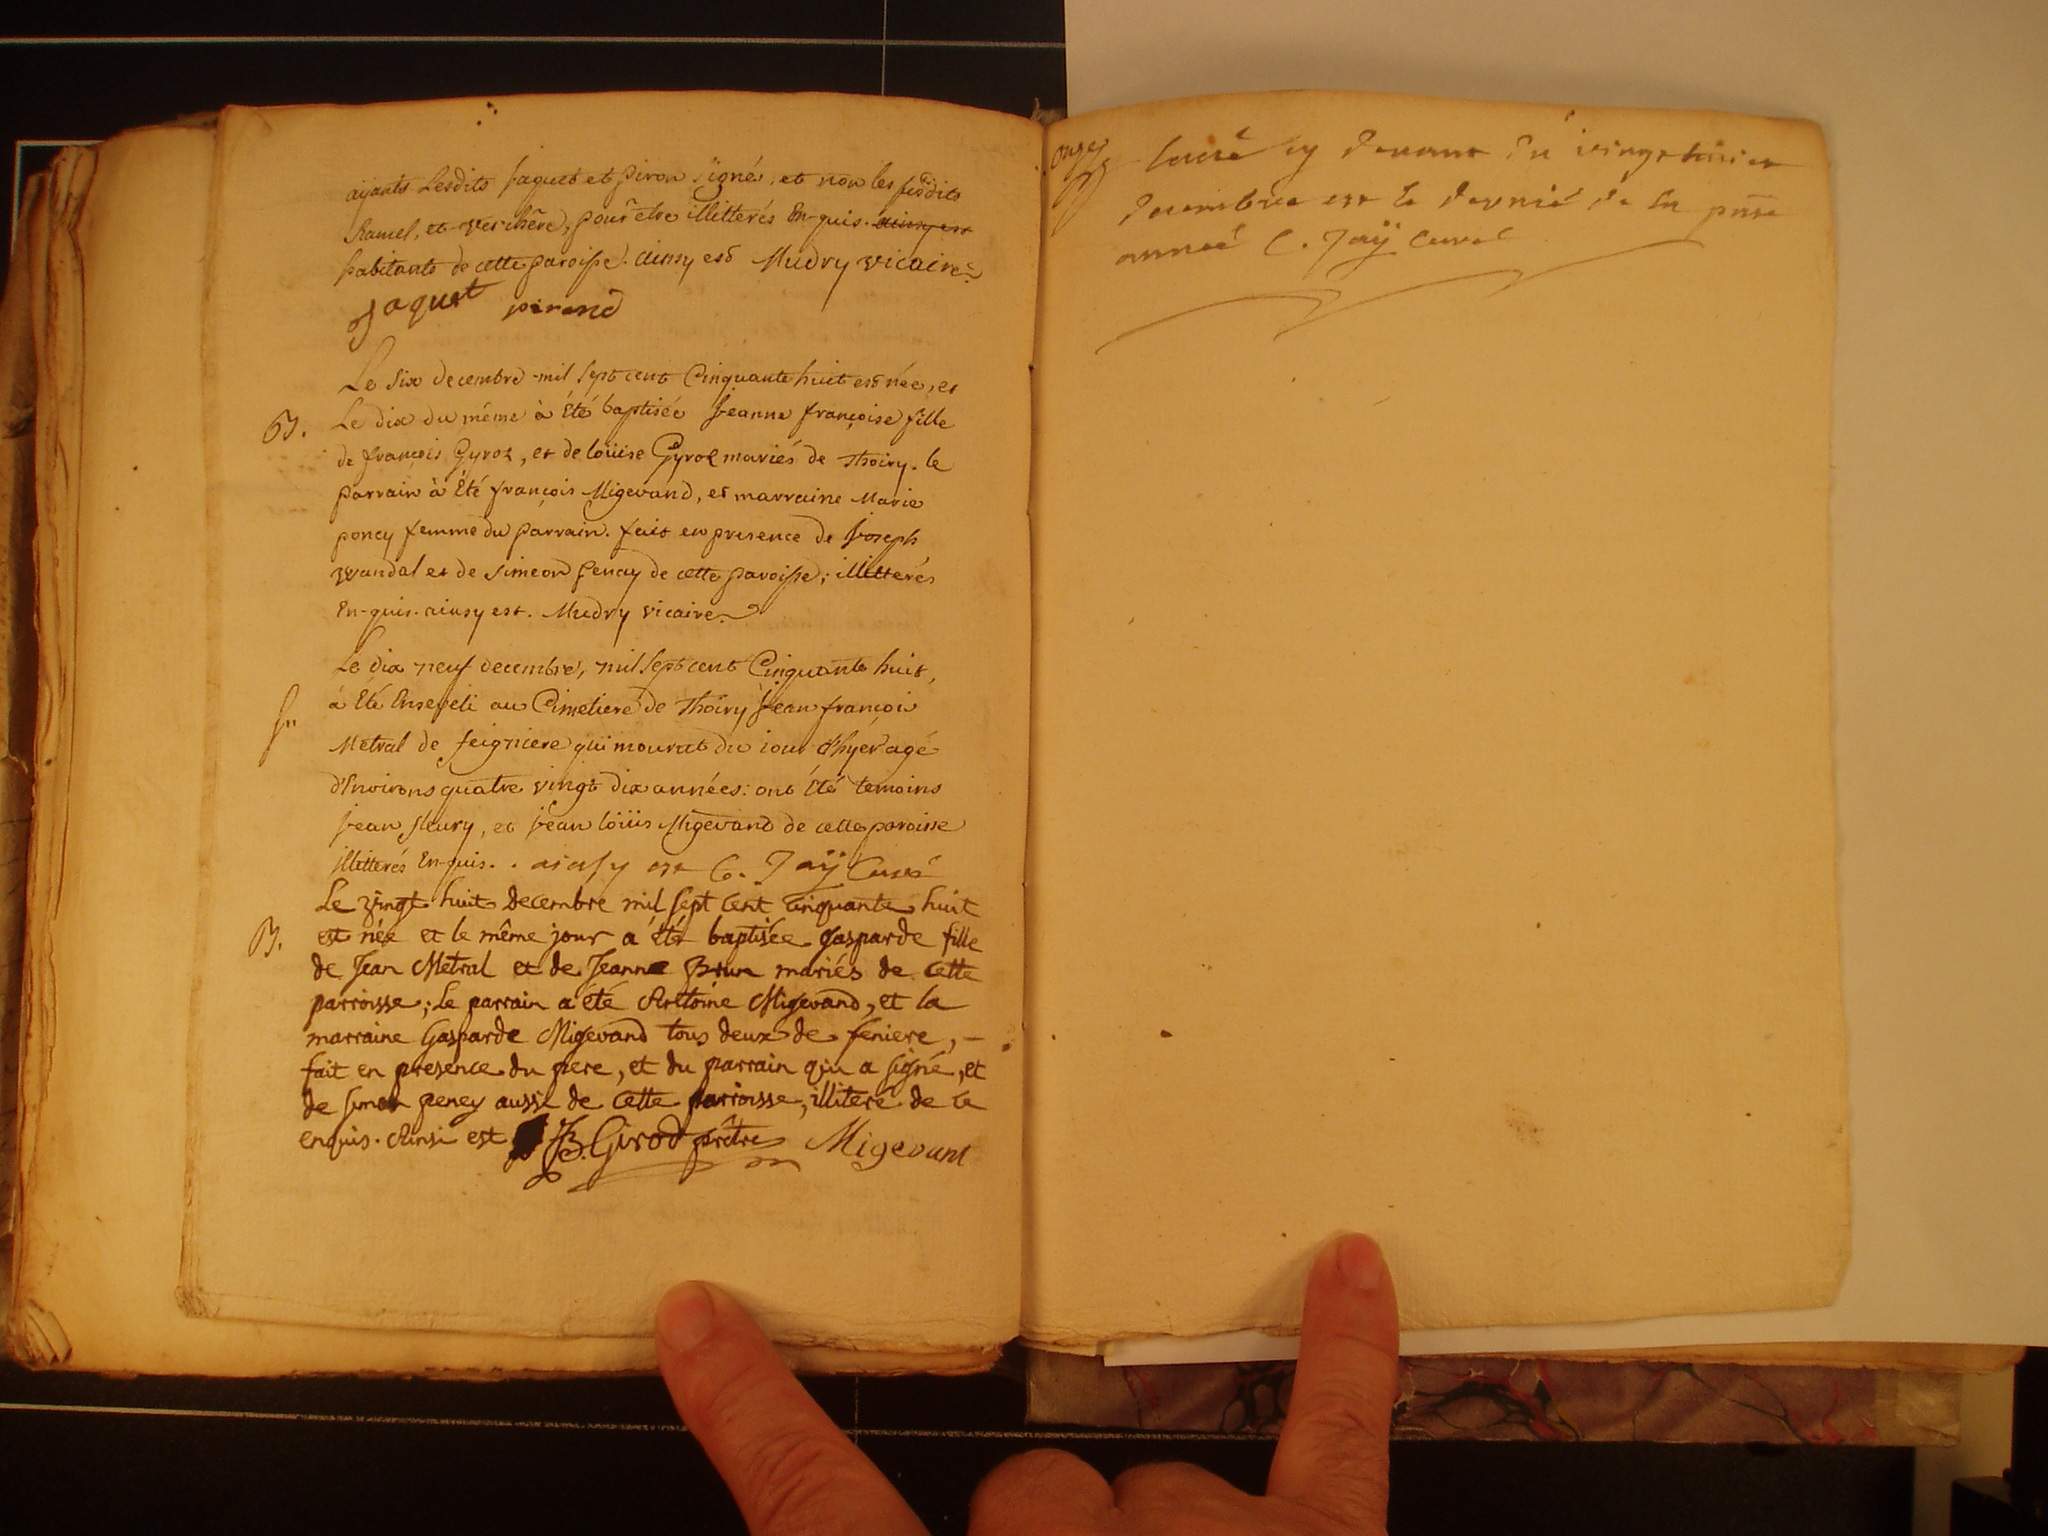 ayants Lesdits Jaquet et piron signé, et non les susdits
Ramel, et verchère, pour etre illitterés En-quis. ainsy est
habitants de cette paroisse. ainsy est Mudry vicaire
Jaquet pirond
Le six decembre mil sept cent Cinquante huit est née, et
B. Le dix du même à été baptisée Jeanne françoise fille
de françois Gyrod, et de loüise Gyrod mariés de Thoiry. le
parrain à Eté françois Migevand, et marraine Marie
poncy femme du parrain. fait en presence de Joseph
wandal et de simeon penay de cette paroisse; illitterés
En-quis. ainsy est. Mudry vicaire
Le dix neuf decembre, mil sept cent Cinquante huit,
à Eté Enseveli au Cimetiere de Thoiry Jean françois
Metral de feigniere qui mourut du jour d'hyer agé
d'Environs quatre vingt dix années: ont Eté temoins
Jean fleury, et Jean loüis Migevand de cette paroisse
illitterés En-quis. . ainsy est C. Jaÿ Curé
Le vingt huit decembre mil sept cent cinquante huit
B. est née et le même jour a été baptisée gasparde fille
de Jean Metral et de Jeanne Brun mariés de cette
parroisse; Le parrain a été Antoine Migevand, et la
marraine Gasparde Migevand tous deux de feniere, -
fait en presence du pere, et du parrain qui a signé, et
de simon peney aussi de cette parroisse, illiteré de ce
enquis. Ainsi est JB. Girod prêtre Migevant
cy devant du vingt huict
decembre est le dernié de la pnte
anneé C. Jaÿ Curé